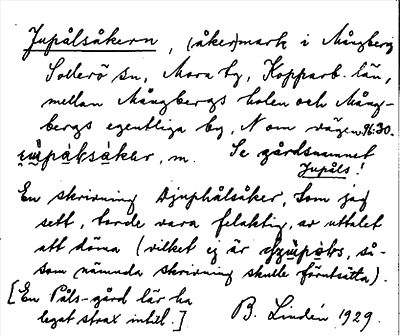 Jupålsåkern, (åker)mark i Mångberg
Sollerö sn, Mora tg, Kopparb. län,
mellan Mångbergs holen och Mång-
bergs egentliga by, N om vägen 96:30.
m. Se gårdsnamnet
Jupåls!
En skrivning Djuphålsåker, som jag
sett, torde vara felaktig, av uttalet
att döma (vilket ej är så-
som nämnda skrivning skulle förutsätta).
[En Påls-gård lär ha
legat strax intill.] B. Lindén 1929.